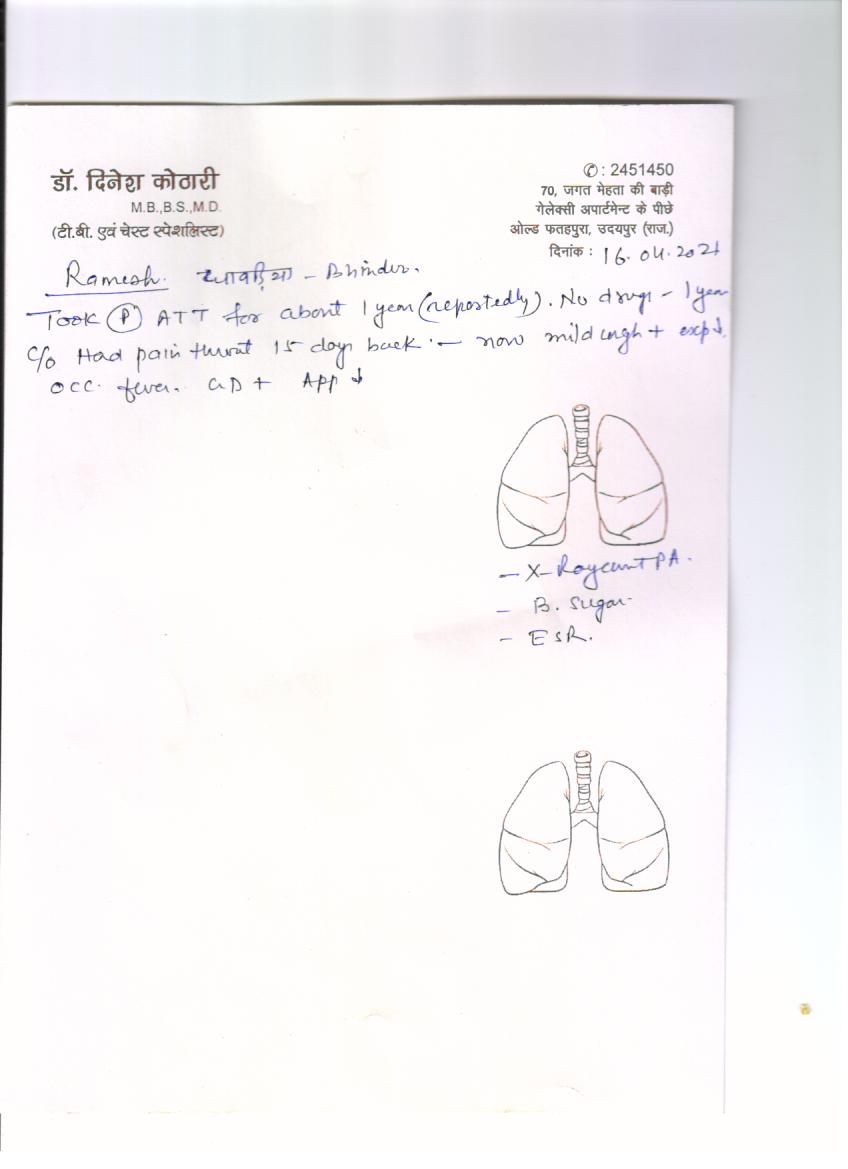 डॉ. दिनेश कोठारी
M.B.,B.S.,M.D.
(टी.बी. एवं चेस्ट स्पेशलिस्ट)
✆: 2451450
70, जगत मेहता की बाड़ी
गेलेक्सी अपार्टमेन्ट के पीछे
ओल्ड फतहपुरा, उदयपुर (राज.)
दिनांक : 16.04.2021
Ramesh. – Bhinder.
Took (P) ATT for about 1 year (reportedly). No drugs – 1 year
c/o Had pain throat 15 days back. – now mild cough + exp↓.
occ. fever. GD + App ↓
– X-Ray chest PA.
– B. Sugar.
– ESR.